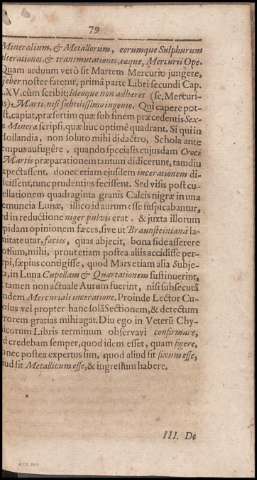 79
Mineralium, & Metallorum, eorumque Sulphurum
alterationes, & transmutationes, eaque, Mercurii Ope.
Quam arduum verò sit Martem Mercurio jungere,
noster fatetur, primâ parte Libri secundi Cap.
XV. cùm scribit; denique non adhæret (sc. Mercuri-
Marti, nisi subtilissimo ingenio. Qui capere pot-
est, captat, præsertim quæ sub finem præcedentis Sex-
Minera scripsi, quæ huc optimè quadrant. Si qui in
Hollandia, non loburo mihi didactro, Schola ante
aufugêre, quando specialis cujusdam Croci
Martis præparationem tantum didicerunt, tamdiu
spectassent, donec etiam ejusdem incerationem di-
dicissent, tunc prudentius fecissent. Sed visis post cu-
pellationem quadraginta granis Calcis nigræ in una
uncia Lunæ, illico id aurum esse suspicabantur,
ad in reductione niger pulvis erat, & juxta illorum
opinionem fæces, sive ut Braunsteiniana
utar, faeces, quas abjecit, bona fide asserere
mihi, prout etiam postea aliis accidisse per-
sæpius contigisse, quod Mars etiam alia Subje-
in Luna Cupellam & Quartationem sustinuerint,
tamen non actuale Aurum fuerint, nisi subsecutâ
Mercuriali inceratione. Proinde Lector Cu-
vel propter hanc solâ Sectionem, & detectum
errorem gratias mihi agat. Diu ego in Veterũ Chy-
Libris terminum observavi confirmare,
credebam semper, quod idem esset, quam figere,
donec postea expertus sim, quod aliud sit fixum esse,
aliud sit Metallicum esse, & ingressum habere.
III. De